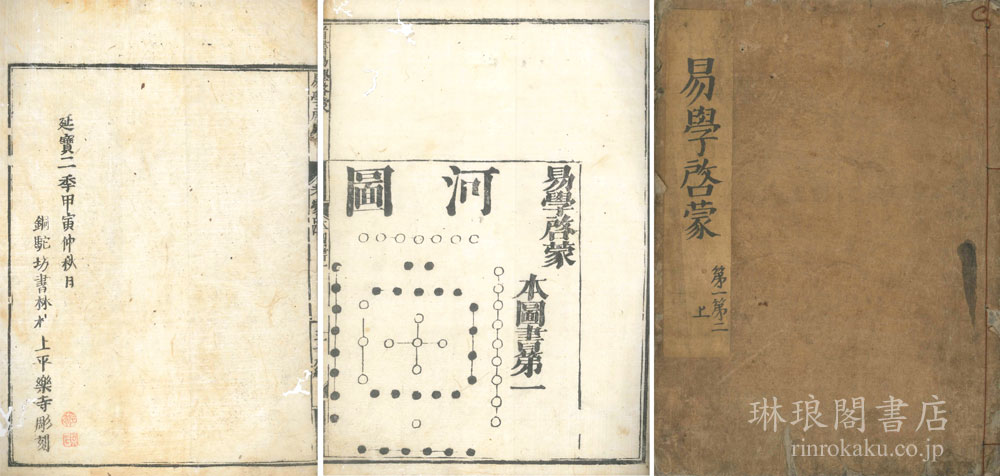 延寶二季甲寅仲秋月
銅駝坊書林村上平樂寺彫刻
易學啓蒙
本圖書第一
河圖
易學啓蒙
第一第二
上
琳琅閣書店
rinrokaku.co.jp